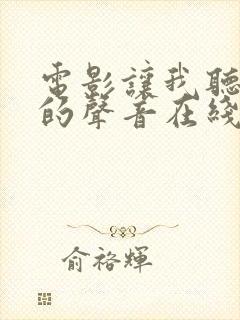 電影讓我聽
的聲音在綫
俞裕輝